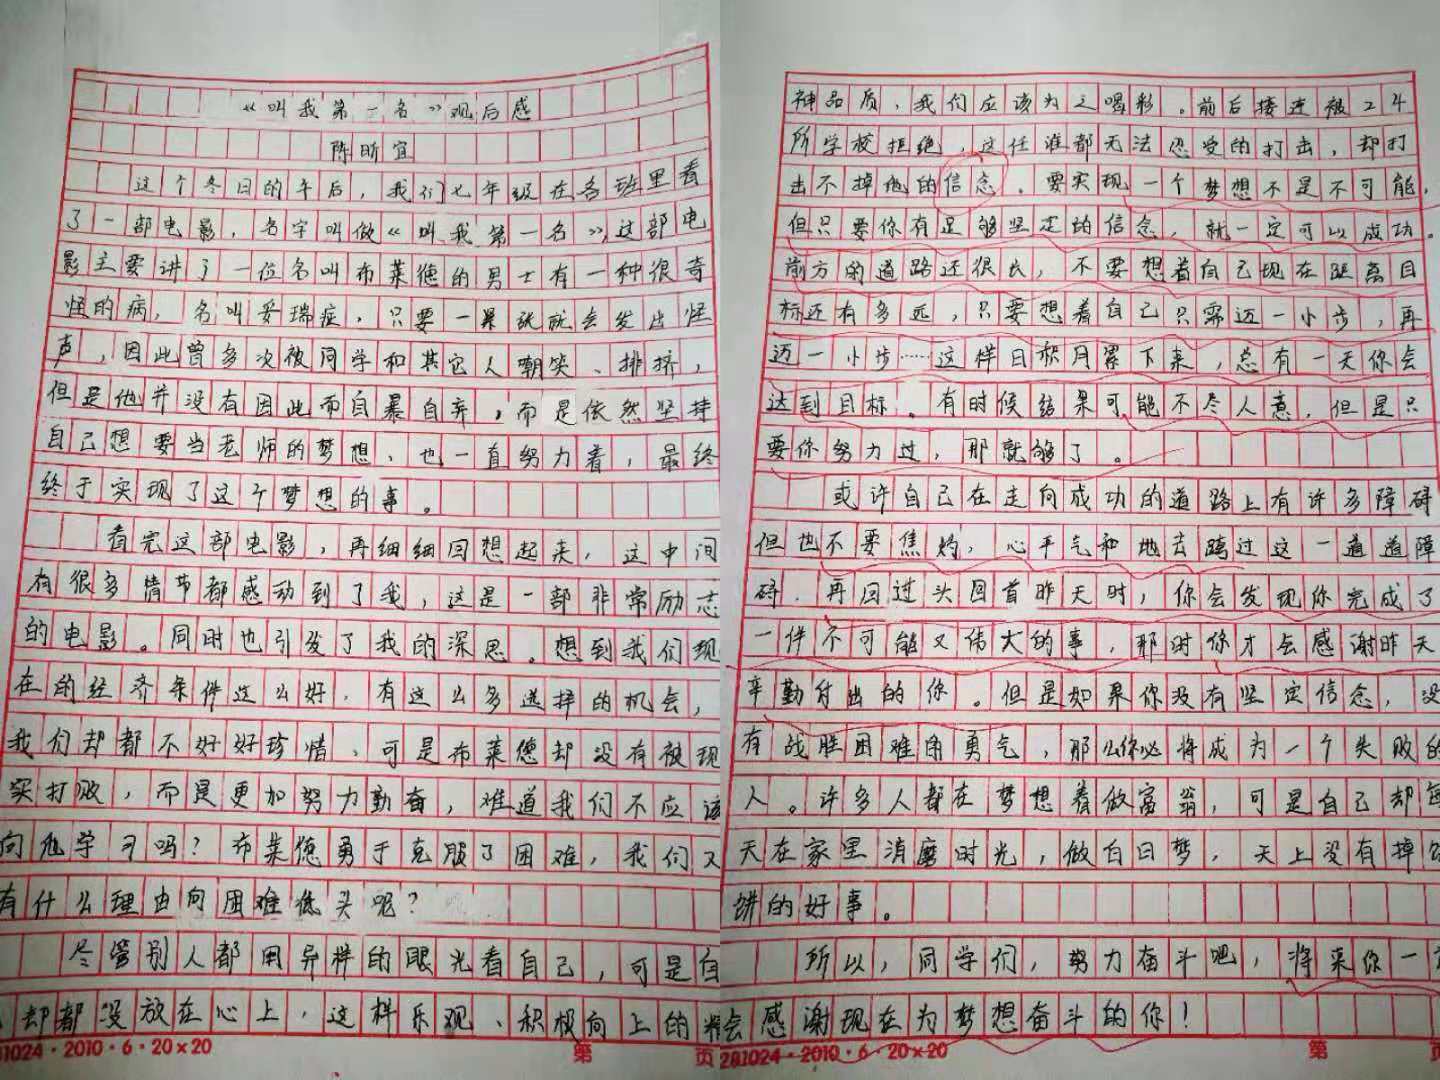 《叫我第一名》观后感
陈昕宜
这个冬日的午后，我们七年级在各班里看
了一部电影，名字叫做《叫我第一名》，这部电
影主要讲了一位名叫布莱德的男士有一种很奇
怪的病，名叫妥瑞症，只要一紧张就会发出怪
声，因此曾多次被同学和其它人嘲笑、排挤，
但是他并没有因此而自暴自弃，而是依然坚持
自己想要当老师的梦想，也一直努力着，最终
终于实现了这个梦想的事。
看完这部电影，再细细回想起来，这中间
有很多情节都感动到了我，这是一部非常励志
的电影。同时也引发了我的深思。想到我们现
在的经济条件这么好，有这么多选择的机会，
我们却都不好好珍惜，可是布莱德却没有被现
实打败，而是更加努力勤奋，难道我们不应该
向他学习吗？布莱德勇于克服了困难，我们又
有什么理由向困难低头呢？
尽管别人都用异样的眼光看自己，可是自
却都没放在心上，这样乐观、积极向上的精
281024·2010·6·20×20 第 页
神品质，我们应该为之喝彩。前后接连被24
所学校拒绝，这任谁都无法忍受的打击，却打
击不掉他的信念。要实现一个梦想不是不可能，
但只要你有足够坚定的信念，就一定可以成功。
前方的道路还很长，不要想着自己现在距离目
标还有多远，只要想着自己只需迈一小步，再
迈一小步……这样日积月累下来，总有一天你会
达到目标。有时候结果可能不尽人意，但是只
要你努力过，那就够了。
或许自己在走向成功的道路上有许多障碍
但也不要焦灼，心平气和地去跨过这一道道障
碍．再回过头回首昨天时，你会发现你完成了
一件不可能又伟大的事，那时你才会感谢昨天
辛勤付出的你。但是如果你没有坚定信念，没
有战胜困难的勇气，那么你必将成为一个失败的
人。许多人都在梦想着做富翁，可是自己却每
天在家里消磨时光，做白日梦，天上没有掉馅
饼的好事。
所以，同学们，努力奋斗吧，将来你一定
会感谢现在为梦想奋斗的你！
281024·2010·6·20×20 第 页